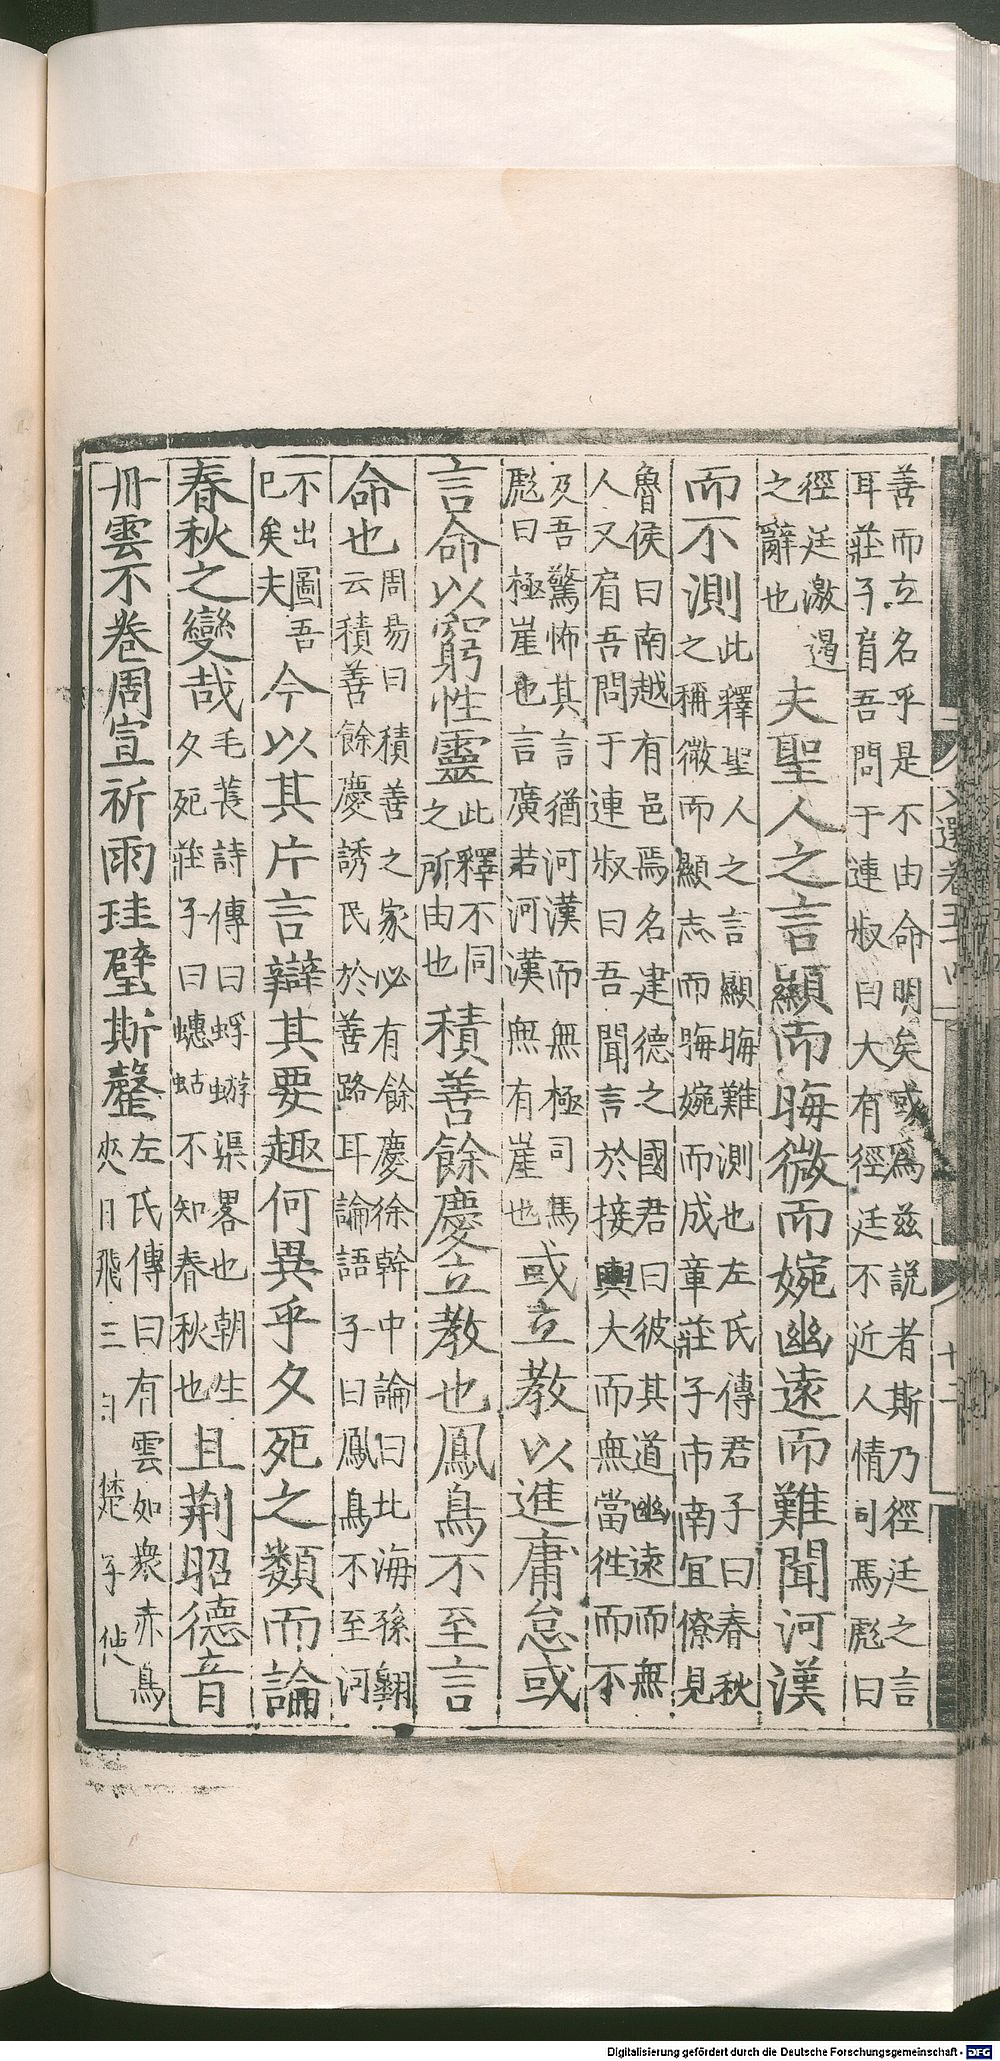 善而立名乎是不由命明矣或爲兹說者斯乃徑廷之言
耳莊子肩吾問于連叔曰大有徑廷不近人情司馬彪曰
徑廷激過
之辭也
夫聖人之言顯而晦微而婉幽遠而難聞河漢
而不測
此釋聖人之言顯晦難測也左氏傳君子曰春秋
之稱微而顯志而晦婉而成章莊子市南宜僚見
魯侯曰南越有邑焉名建德之國君曰彼其道幽遠而無
人又肩吾問于連叔曰吾聞言於接輿大而無當徃而不
及吾驚怖其言猶河漢而無極司馬
彪曰極崖也言廣若河漢無有崖也
或立教以進庸怠或
言命以窮性靈
此釋不同
之所由也
積善餘慶立教也鳳鳥不至言
命也
周易曰積善之家必有餘慶徐幹中論曰北海孫翺
云積善餘慶誘民於善路耳論語子曰鳳鳥不至河
不出圖吾
巳矣夫
今以其片言辯其要趣何異乎夕死之類而論
春秋之變哉
毛萇詩傳曰蜉蝣渠畧也朝生
夕死莊子曰蟪蛄不知春秋也
且荆昭德音
丹雲不卷周宣祈雨珪璧斯罄
左氏傳曰有雲如衆赤鳥
夾日飛三日楚子使
文選卷五十四
十二
Digitalisierung gefördert durch die Deutsche Forschungsgemeinschaft - DFG